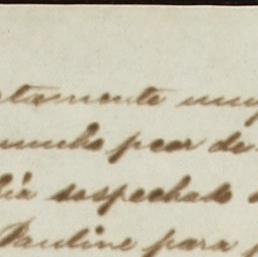 tamente muy
mucho peor de
bía sospechado
Pauline para